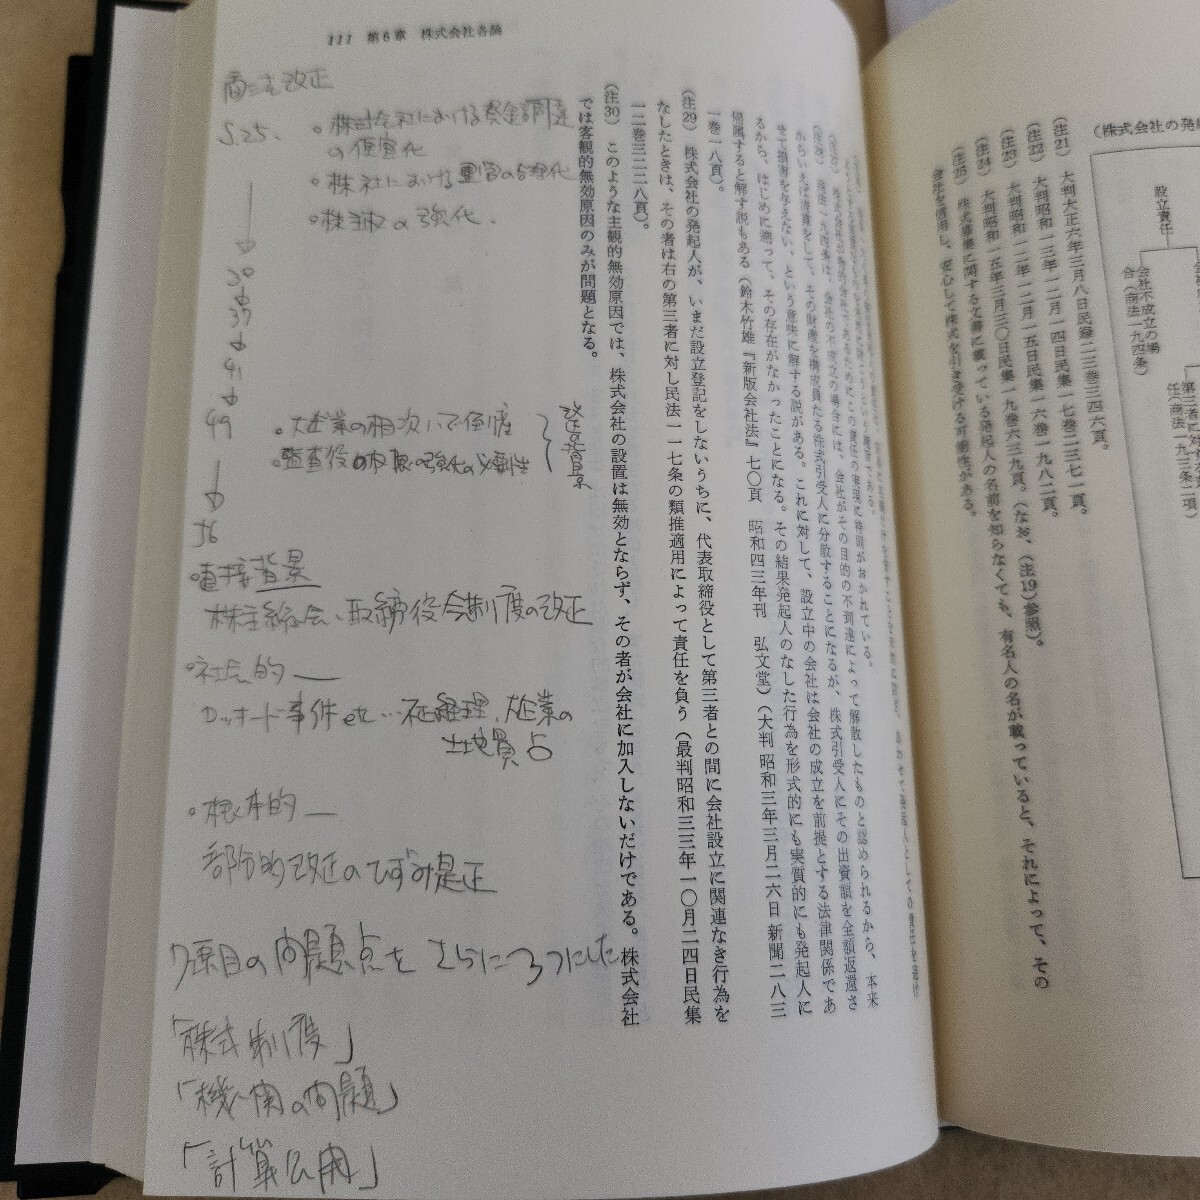 111 第6章 株式会社各論
商法改正
S.25.
。株式会社における資金調達
の便宜化
。株社における運営の合理化
。株主権の強化.
30
37
41
49
。大企業の相次いで倒産
。監査役の権限の強化の必要性
改正の背景
56
。直接背景
株主総会、取締役会制度の改正
。社会的 ―
ロッキード事件etc…不正経理、大企業の
土地買占
。根本的 ―
部分的改正のひずみ是正
7項目の問題点をさらに3つにした
「株式制度」
「機関の問題」
「計算公開」
からいえば清算をして、その財産を構成員たる株式引受人に分散することになるが、株式引受人にその出資額を全額返還さ
せて損害を与えない、という意味に解する説がある。これに対して、設立中の会社は会社の成立を前提とする法律関係であ
るから、はじめに遡って、その存在がなかったことになる。その結果発起人のなした行為を形式的にも実質的にも発起人に
帰属すると解する説もある(鈴木竹雄『新版会社法』七〇頁 昭和四三年刊 弘文堂)(大判昭和三年三月二六日新聞二八三
一巻一八頁)。
(注29) 株式会社の発起人が、いまだ設立登記をしないうちに、代表取締役として第三者との間に会社設立に関連なき行為を
なしたときは、その者は右の第三者に対し民法一一七条の類推適用によって責任を負う(最判昭和三三年一〇月二四日民集
一二巻三二二八頁)。
(注30) このような主観的無効原因では、株式会社の設置は無効とならず、その者が会社に加入しないだけである。株式会社
では客観的無効原因のみが問題となる。
(株式会社の発
設立責任
会社不成立の場
合(商法一九四条)
第三者に対
任(商法一九三条二項)
(注21) 大判大正六年三月八日民録二三巻三四六頁。
(注22) 大判昭和一三年一二月一四日民集一七巻二三七一頁。
(注23) 大判昭和一二年一二月一五日民集一六巻一九八二頁。
(注24) 大判昭和一五年三月三〇日民集一九巻六三九頁。(なお、(注19)参照)。
(注25) 株式募集に関する文書に載っている発起人の名前を知らなくても、有名人の名が載っていると、それによって、その
会社を信用し、安心して株式を引き受ける可能性がある。